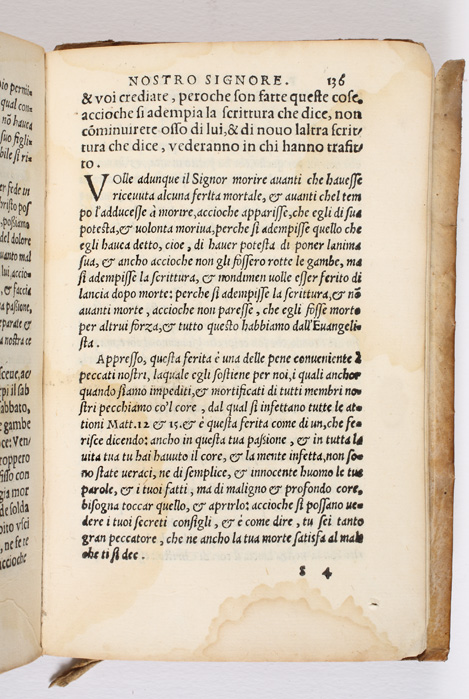 pio permi=
qual con=
nō hauea
suo figli=
bile si ri=
er fede in
hristo pos
possiamo
del dolore
uanto mal
lui, accio=
& faccia
ra passione,
eparate &
nostra ce
scene, ac
pi il sab
abbato,
e gambe
ce: Ven/
roppero
fisso con
gia mor
de solda
bito vsci
ne fe te
accioche
NOSTRO SIGNORE. 136
& voi crediate, peroche son fatte queste cose,
accioche si adempia la scrittura che dice, non
cōminuirete osso di lui, & di nouo laltra scrit/
tura che dice, vederanno in chi hanno trafit/
to.
VOlle adunque il Signor morire auanti che hauesse
riceuuta alcuna ferita mortale, & auanti chel tem
po l'adducesse à morire, accioche apparisse, che egli di sua
potesta, & volonta moriua, perche si adempisse quello che
egli hauea detto, cioe, di hauer potesta di poner lanima
sua, & ancho accioche non gli fossero rotte le gambe, ma
si adempisse la scrittura, & nondimen uolle esser ferito di
lancia dopo morte: perche si adempisse la scrittura, & nō
auanti morte, accioche non paresse, che egli fosse morto
per altrui forza, & tutto questo habbiamo dall'Euangeli=
sta.
Appresso, questa ferita è una delle pene conueniente à
peccati nostri, laquale egli sostiene per noi, i quali anchor
quando siamo impediti, & mortificati di tutti membri no=
stri pecchiamo co'l core, dal qual si infettano tutte le at=
tioni Matt. 12 & 15. & è questa ferita come di un, che fe=
risce dicendo: ancho in questa tua passione, & in tutta la
uita tua tu hai hauuto il core, & la mente infetta, non so=
no state ueraci, ne di semplice, & innocente huomo le tue
parole, & i tuoi fatti, ma di maligno & profondo core,
bisogna toccar quello, & aprirlo: accioche si possano ue=
dere i tuoi secreti consigli, & è come dire, tu sei tanto
gran peccatore, che ne ancho la tua morte satisfa al male
che ti si dee.
S 4